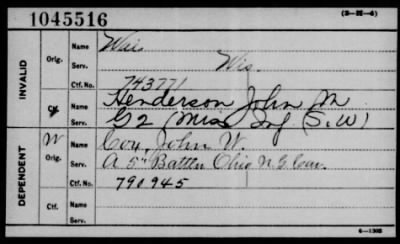 1045516
(3-M-4)
INVALID
Orig.
Name
Serv. Wis.
Ctf.No. 743771
Ctf.
Name Henderson John M
Serv. G 2 Miss Inf (S.W)
DEPENDENT
W
Orig.
Name Cox, John W.
Serv. A 5" Battln Ohio N.G. Cav.
Ctf.No. 790945
Ctf.
Name
Serv.
6-1302